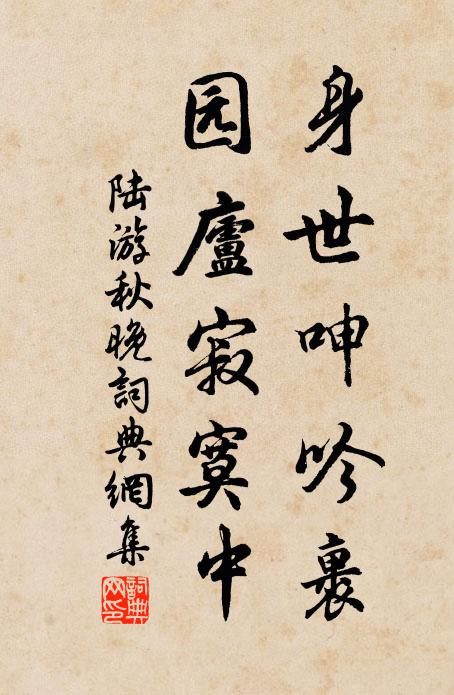 身世呻吟裏
园廬寂寞中
陆游秋晚詞典網集
詞典网印